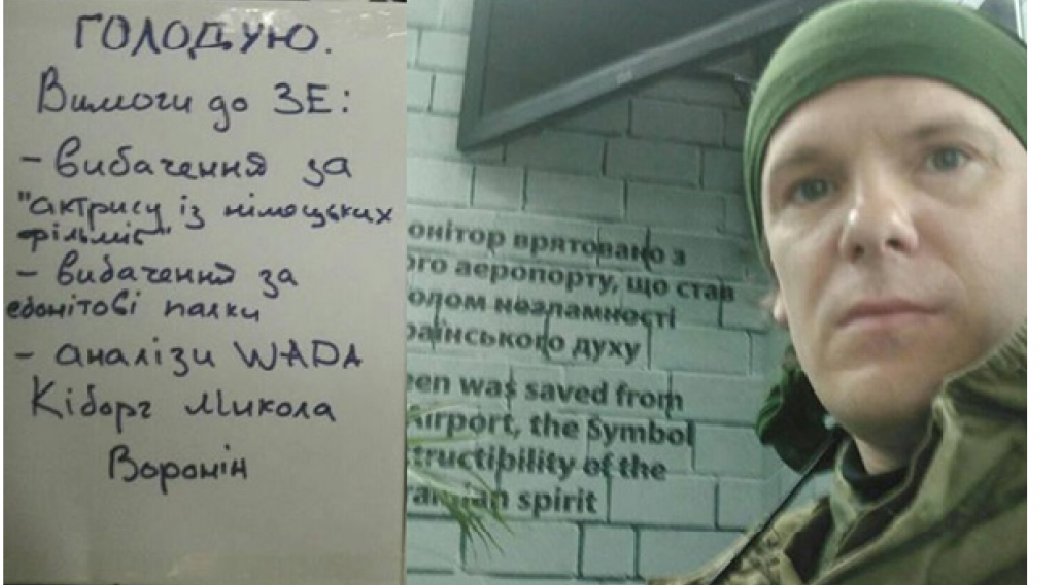 ГОЛОДУЮ.
Вимоги до ЗЕ:
- вибачення за
"актрису із німецьких
фільмів"
- вибачення за
ебонітові палки
- аналізи WADA
Кіборг Микола
Воронін
онітор врятовано з
ого аеропорту, що став
олом незламності
раїнського духу
een was saved from
Airport, the Symbol
tructibility of the
ainian spirit